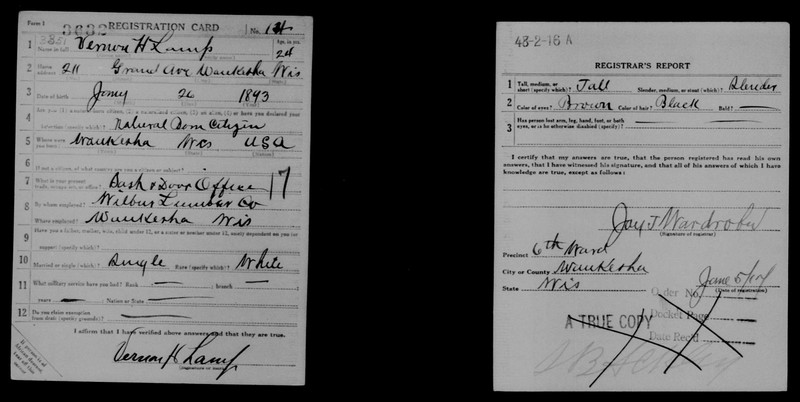 Form 1
3632
REGISTRATION CARD
No. 124
3851
1 Name in full Vernon H Lamp
Age, in yrs. 24
2 Home address 211 Grand Ave Waukesha Wis
3 Date of birth Jany 26 1893
4 Are you (1) a natural-born citizen, (2) a naturalized citizen, (3) an alien, (4) or have you declared your
intention (specify which)? Natural Born Citizen
5 Where were you born? Waukesha Wis USA
6 If not a citizen, of what country are you a citizen or subject?
7 What is your present trade, occupation, or office? Sash & Door Office 17
8 By whom employed? Wilbur Lumber Co
Where employed? Waukesha Wis
9 Have you a father, mother, wife, child under 12, or a sister or brother under 12, solely dependent on you for
support (specify which)?
10 Married or single (which)? Single Race (specify which)? White
11 What military service have you had? Rank — ; branch — ;
years — ; Nation or State —
12 Do you claim exemption from draft (specify grounds)? —
I affirm that I have verified above answers and that they are true.
Vernon H Lamp
(Signature or mark)
48-2-16 A
REGISTRAR'S REPORT
1 Tall, medium, or short (specify which)? Tall Slender, medium, or stout (which)? Slender
2 Color of eyes? Brown Color of hair? Black Bald? —
3 Has person lost arm, leg, hand, foot, or both
eyes, or is he otherwise disabled (specify)? —
I certify that my answers are true, that the person registered has read his own
answers, that I have witnessed his signature, and that all of his answers of which I have
knowledge are true, except as follows:
Jay J Wardrobe
(Signature of registrar)
Precinct 6th Ward
City or County Waukesha
State Wis
June 5/17
(Date of registration)
Order No.
Docket Page
Date Rec'd
A TRUE COPY